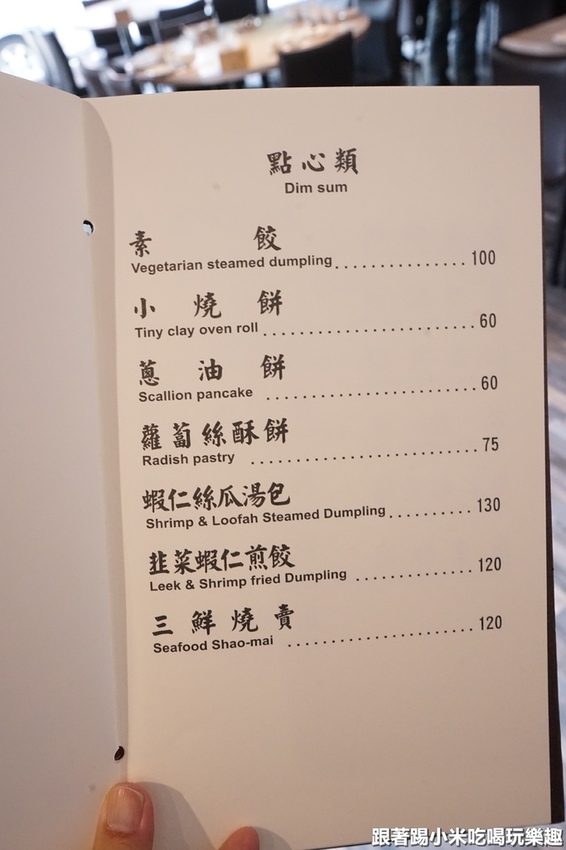 點心類
Dim sum
素餃
Vegetarian steamed dumpling...............100
小燒餅
Tiny clay oven roll........................60
蔥油餅
Scallion pancake ........................60
蘿蔔絲酥餅
Radish pastry .........................75
蝦仁絲瓜湯包
Shrimp & Loofah Steamed Dumpling.........130
韭菜蝦仁煎餃
Leek & Shrimp fried Dumpling .............120
三鮮燒賣
Seafood Shao-mai ....................120
跟著踢小米吃喝玩樂趣